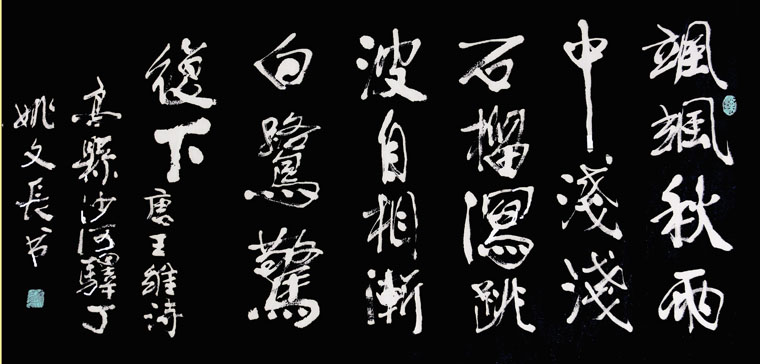 颯颯秋雨
中淺淺
石榴瀉跳
波自相漸
白鷺驚
復下
唐王維詩
高縣沙河驛丁
姚文長书